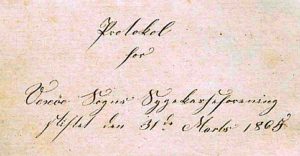 Protokol
for
Sogns Sygekasseforening
stiftet den 31te Marts 1868